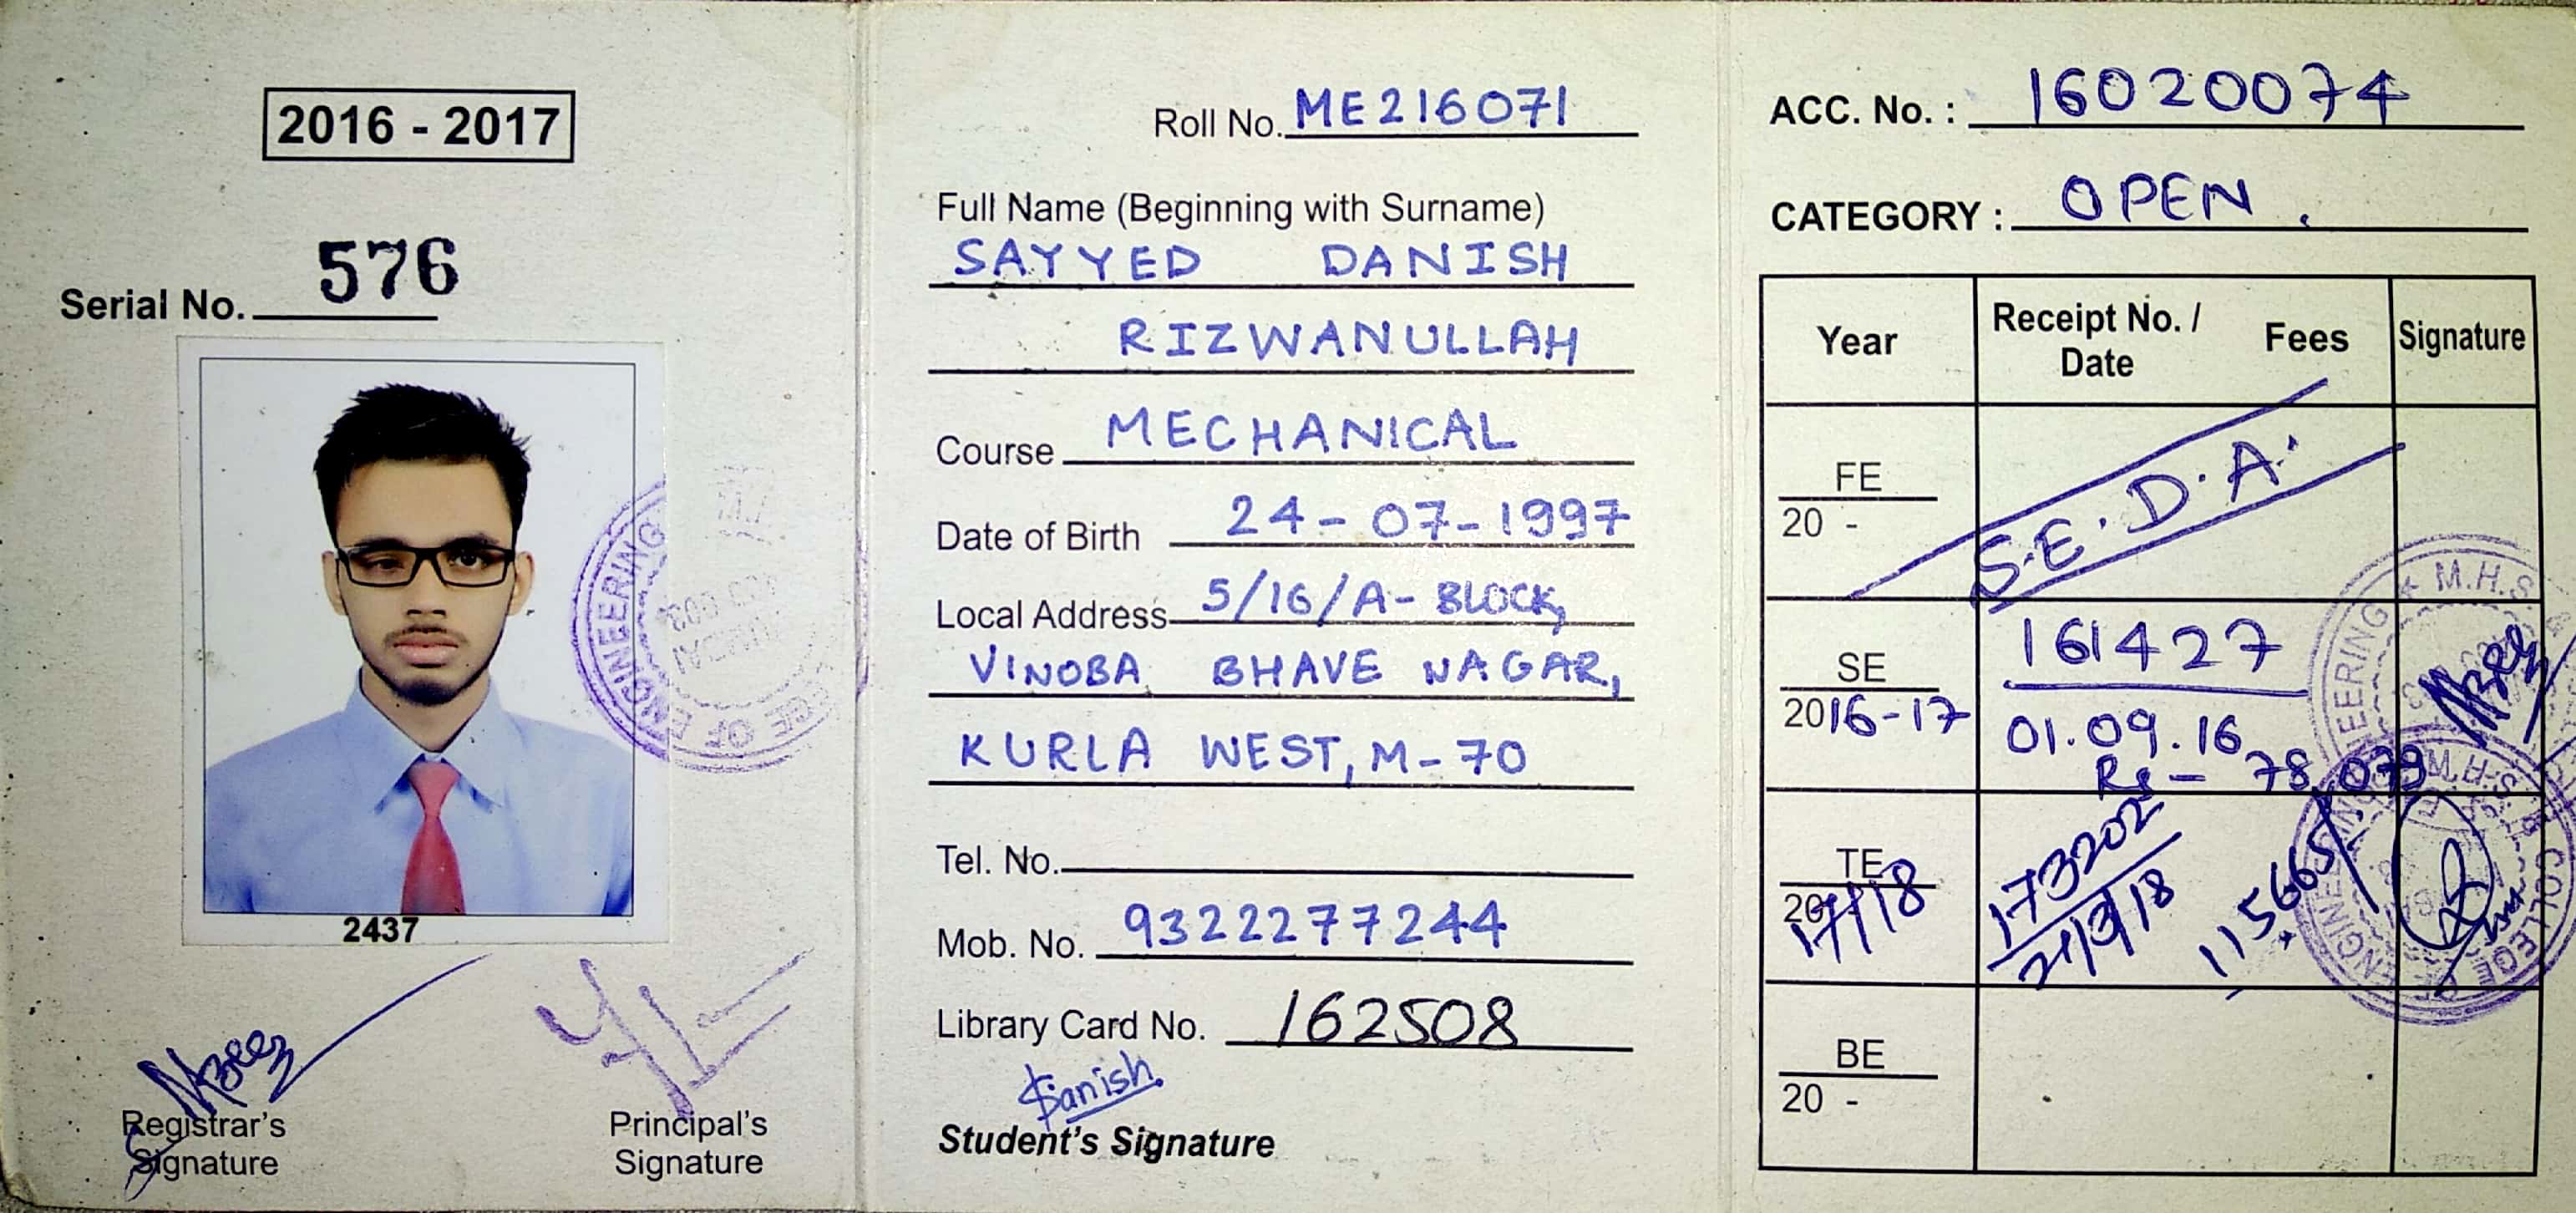 2016 - 2017
Serial No. 576
2437
Registrar's
Signature
Principal's
Signature
Roll No. ME216071
Full Name (Beginning with Surname)
SAYYED DANISH
RIZWANULLAH
Course MECHANICAL
Date of Birth 24-07-1997
Local Address 5/16/A-BLOCK,
VINOBA BHAVE NAGAR,
KURLA WEST, M-70
Tel. No.
Mob. No. 9322277244
Library Card No. 162508
Danish
Student's Signature
ACC. No. : 16020074
CATEGORY : OPEN.
Year Receipt No. / Date Fees Signature
FE
20 -
S.E.D.A.
SE
2016-17
161427
01.09.16
Rs - 78,079
TE
20 17/18
173202
115665/
BE
20 -
COLLEGE OF ENGINEERING
M.H.S.